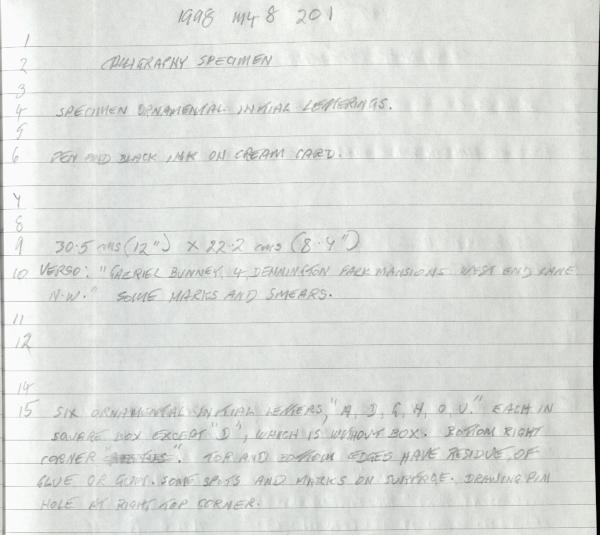 1998 MY 8 201
1
2 CALLIGRAPHY SPECIMEN
3
4 SPECIMEN ORNAMENTAL INITIAL LETTERINGS.
5
6 PEN AND BLACK INK ON CREAM CARD.
7
8
9 30.5 cms (12") X 22.2 cms (8.4")
10 VERSO: "GABRIEL BUNNEY, 4, DENNINGTON PARK MANSIONS WEST END LANE
N.W." SOME MARKS AND SMEARS.
11
12
14
15 SIX ORNAMENTAL INITIAL LETTERS, "A, D, G, H, O, U." EACH IN
SQUARE BOX EXCEPT "D", WHICH IS WITHOUT BOX. BOTTOM RIGHT
CORNER TOP AND BOTTOM EDGES HAVE RESIDUE OF
GLUE OR GUM. SOME SPOTS AND MARKS ON SURFACE. DRAWING PIN
HOLE AT RIGHT TOP CORNER.